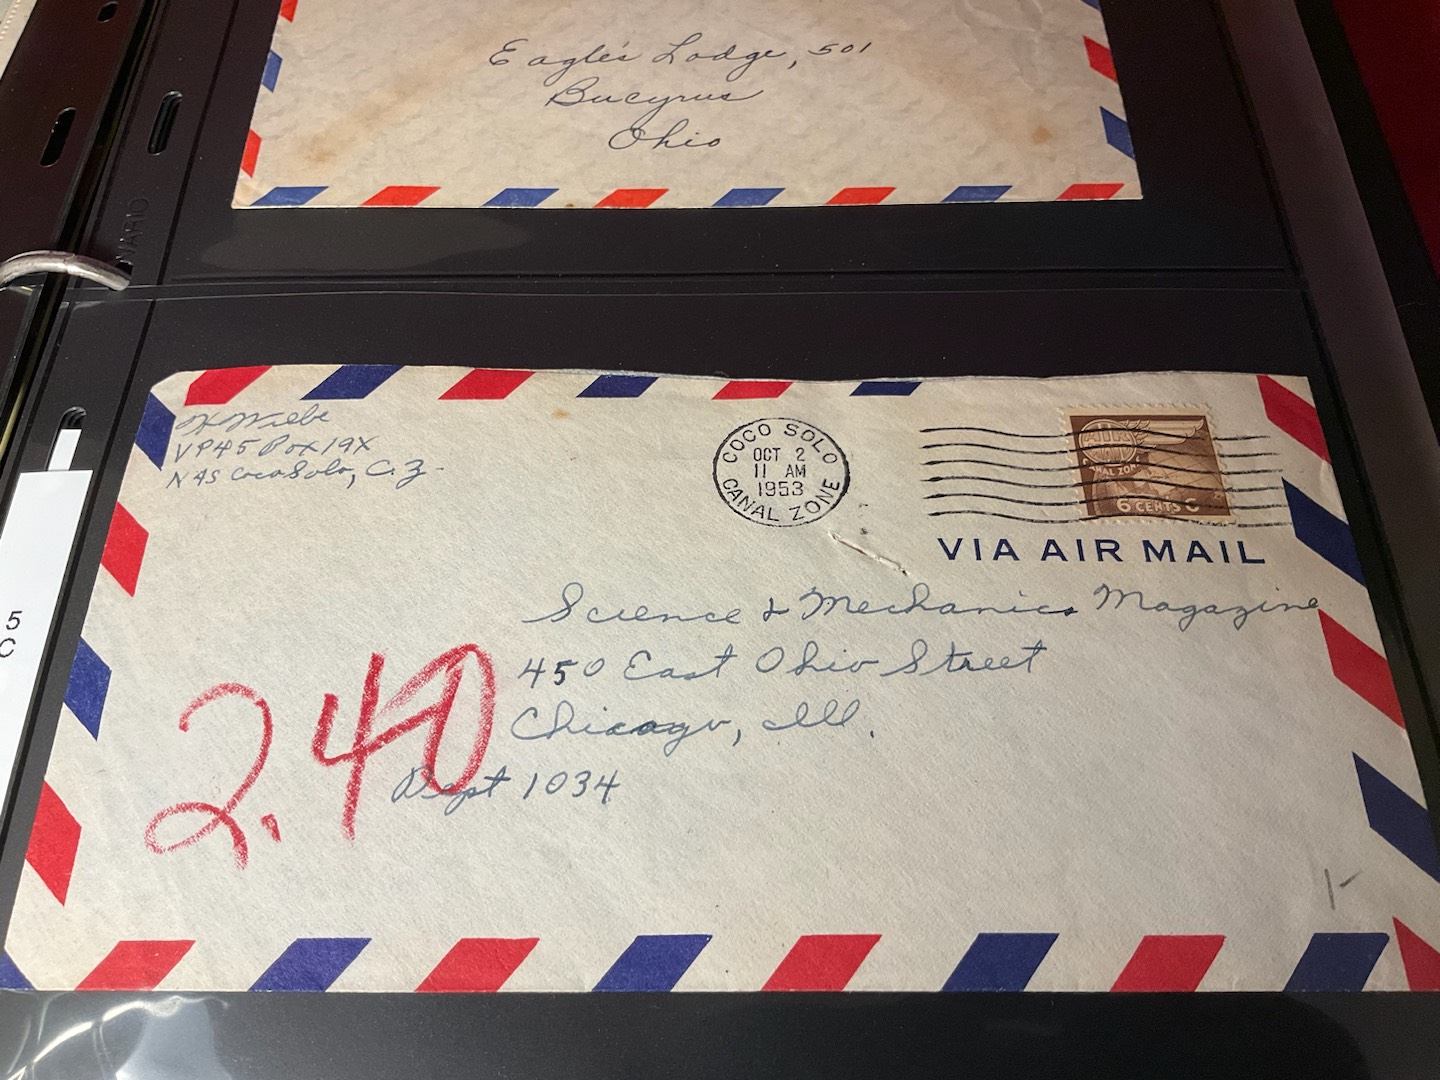 Eagle's Lodge, 501
Bucyrus
Ohio
VARIO
H Wiebe
VP45 Box 19X
NAS Coco Solo, C.Z.
COCO SOLO
OCT 2
11 AM
1953
CANAL ZONE
AIR MAIL
CANAL ZONE
6 CENTS 6
VIA AIR MAIL
Science & Mechanics Magazine
450 East Ohio Street
Chicago, Ill.
Dept 1034
2.40
5
C